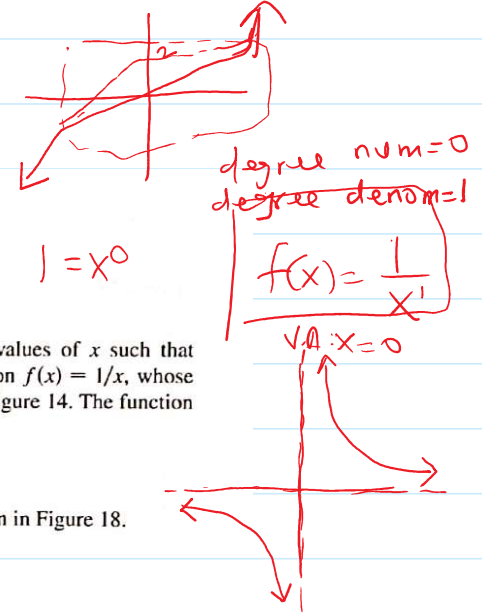 2
degree num=0
degree denom=1
1 = x⁰
f(x) = 1/x¹
V.A : x=0
values of x such that
on f(x) = 1/x, whose
gure 14. The function
n in Figure 18.